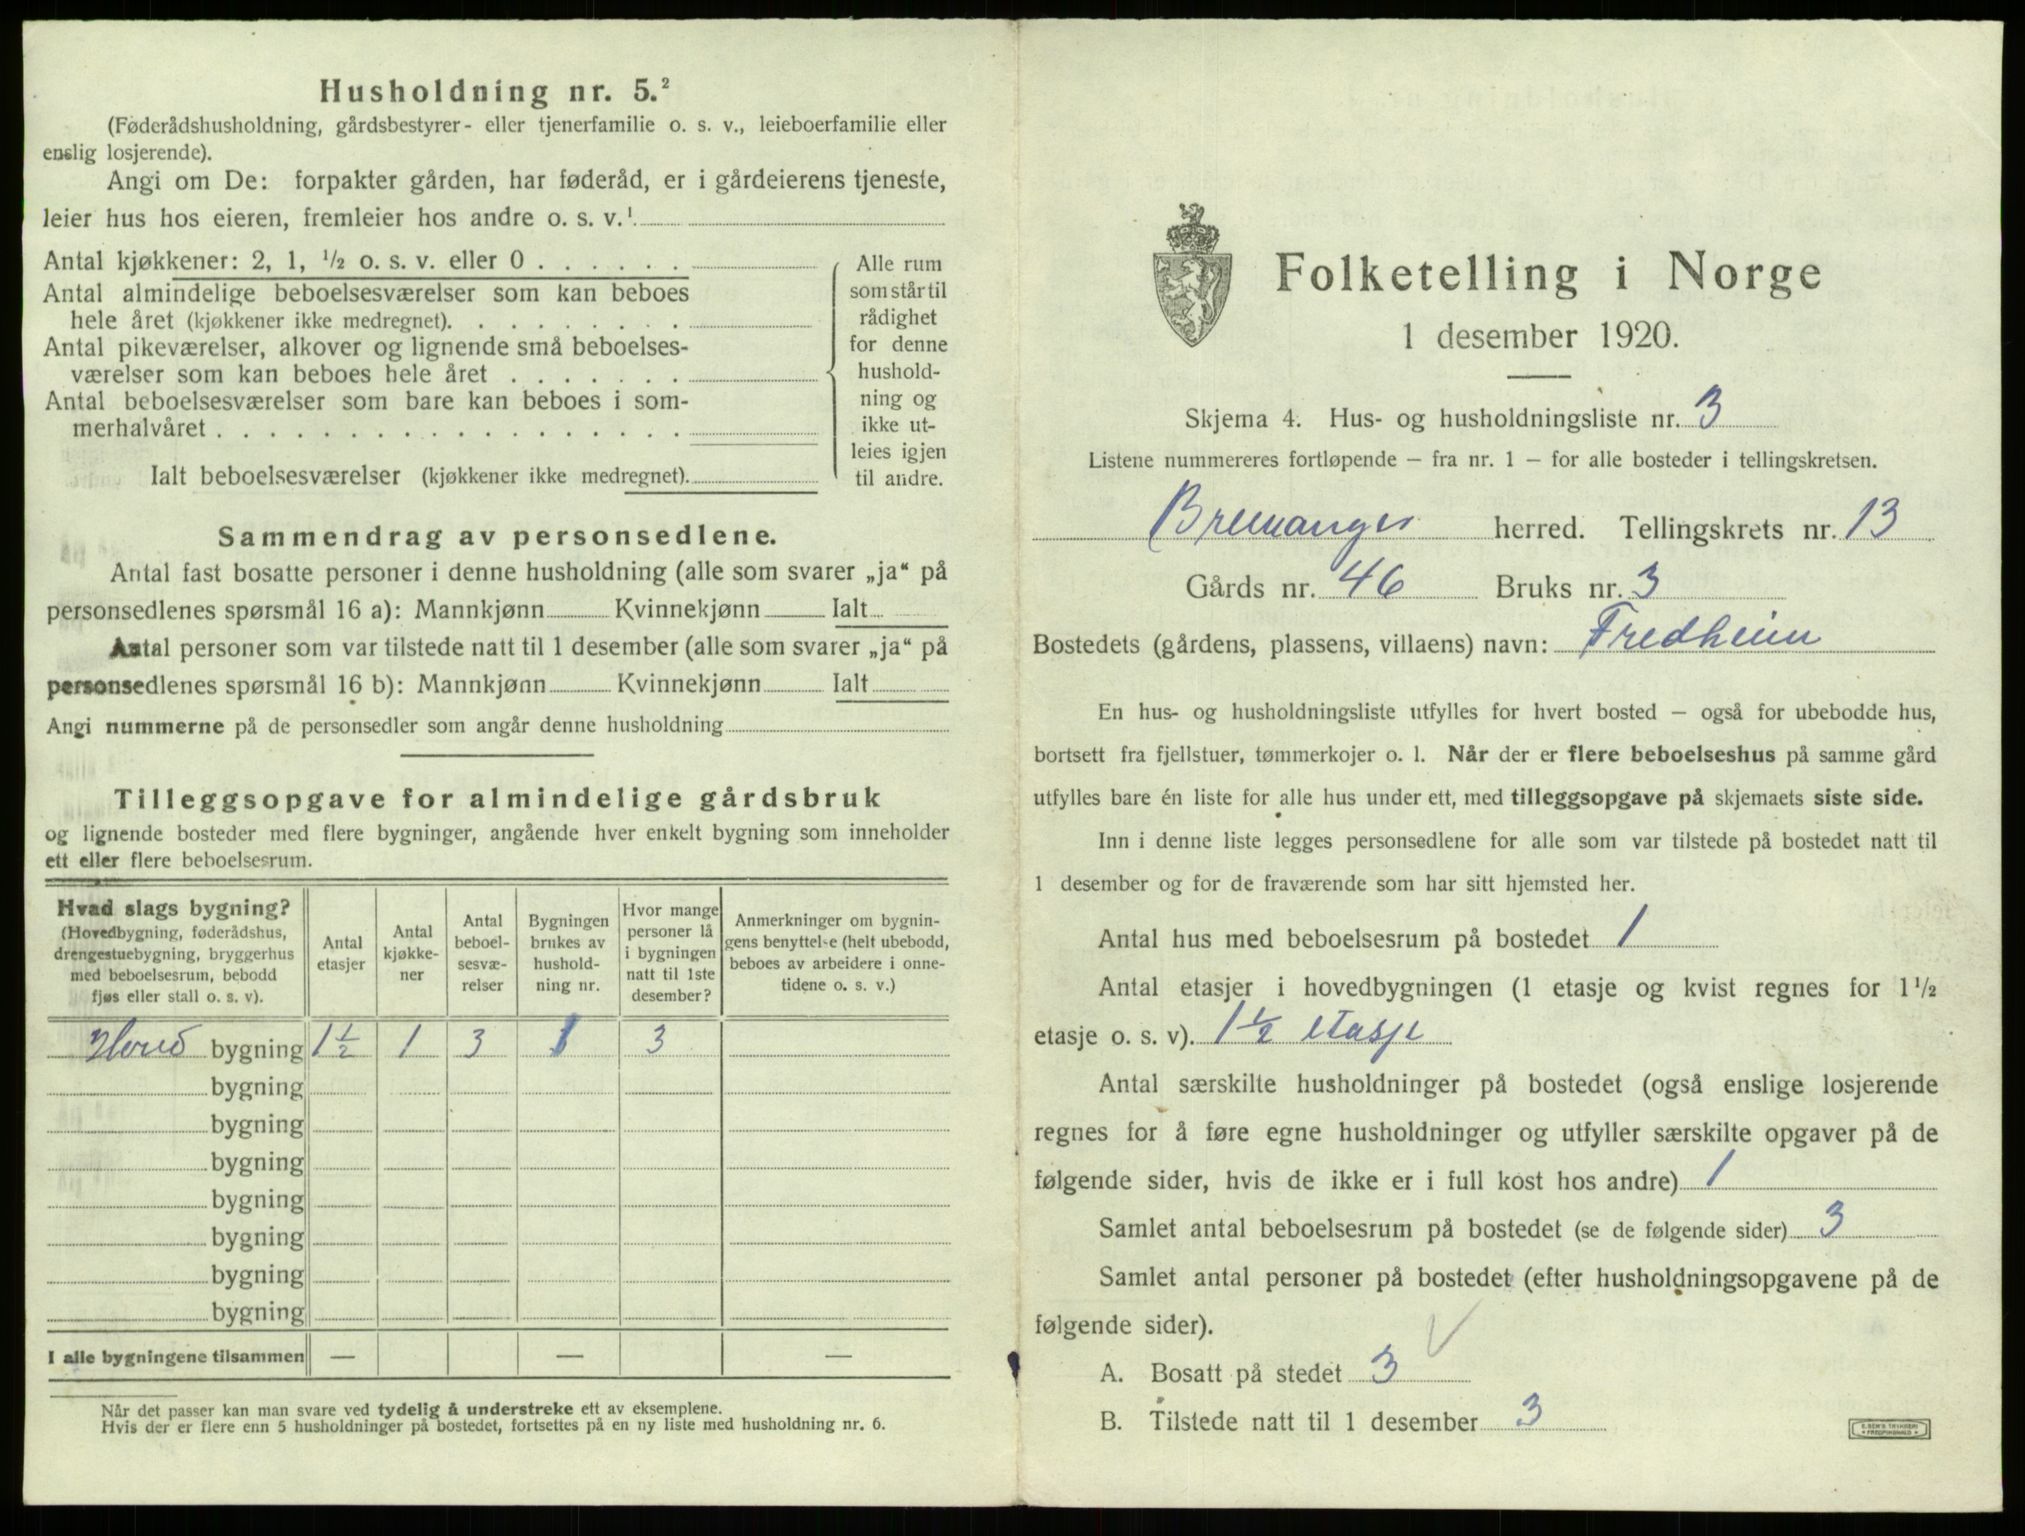 Husholdning nr. 5.²
(Føderådshusholdning, gårdsbestyrer- eller tjenerfamilie o. s. v., leieboerfamilie eller
enslig losjerende).
Angi om De: forpakter gården, har føderåd, er i gårdeierens tjeneste,
leier hus hos eieren, fremleier hos andre o. s. v.¹
Antal kjøkkener: 2, 1, ½ o. s. v. eller 0
Antal almindelige beboelsesværelser som kan beboes
hele året (kjøkkener ikke medregnet).
Antal pikeværelser, alkover og lignende små beboelses-
værelser som kan beboes hele året
Antal beboelsesværelser som bare kan beboes i som-
merhalvåret
Ialt beboelsesværelser (kjøkkener ikke medregnet).
Alle rum
som står til
rådighet
for denne
hushold-
ning og
ikke ut-
leies igjen
til andre.
Sammendrag av personsedlene.
Antal fast bosatte personer i denne husholdning (alle som svarer „ja“ på
personsedlenes spørsmål 16 a): Mannkjønn Kvinnekjønn Ialt
Antal personer som var tilstede natt til 1 desember (alle som svarer „ja“ på
personsedlenes spørsmål 16 b): Mannkjønn Kvinnekjønn Ialt
Angi nummerne på de personsedler som angår denne husholdning
Tilleggsopgave for almindelige gårdsbruk
og lignende bosteder med flere bygninger, angående hver enkelt bygning som inneholder
ett eller flere beboelsesrum.
Hvad slags bygning?
(Hovedbygning, føderådshus,
drengestuebygning, bryggerhus
med beboelsesrum, bebodd
fjøs eller stall o. s. v).
Antal
etasjer
Antal
kjøkke-
ner
Antal
beboel-
sesvæ-
relser
Bygningen
brukes av
hushold-
ning nr.
Hvor mange
personer lå
i bygningen
natt til 1ste
desember?
Anmerkninger om bygnin-
gens benyttelse (helt ubebodd,
beboes av arbeidere i onne-
tidene o. s. v.)
Hoved bygning 1½ 1 3 1 3
bygning
bygning
bygning
bygning
bygning
bygning
bygning
I alle bygningene tilsammen — — —
Når det passer kan man svare ved tydelig å understreke ett av eksemplene.
Hvis der er flere enn 5 husholdninger på bostedet, fortsettes på en ny liste med husholdning nr. 6.
Folketelling i Norge
1 desember 1920.
Skjema 4. Hus- og husholdningsliste nr. 3
Listene nummereres fortløpende – fra nr. 1 – for alle bosteder i tellingskretsen.
Bremanger herred. Tellingskrets nr. 13
Gårds nr. 46 Bruks nr. 3
Bostedets (gårdens, plassens, villaens) navn: Fredheim
En hus- og husholdningsliste utfylles for hvert bosted – også for ubebodde hus,
bortsett fra fjellstuer, tømmerkojer o. l. Når der er flere beboelseshus på samme gård
utfylles bare én liste for alle hus under ett, med tilleggsopgave på skjemaets siste side.
Inn i denne liste legges personsedlene for alle som var tilstede på bostedet natt til
1 desember og for de fraværende som har sitt hjemsted her.
Antal hus med beboelsesrum på bostedet 1
Antal etasjer i hovedbygningen (1 etasje og kvist regnes for 1½
etasje o. s. v). 1½ etasje
Antal særskilte husholdninger på bostedet (også enslige losjerende
regnes for å føre egne husholdninger og utfyller særskilte opgaver på de
følgende sider, hvis de ikke er i full kost hos andre) 1
Samlet antal beboelsesrum på bostedet (se de følgende sider) 3
Samlet antal personer på bostedet (efter husholdningsopgavene på de
følgende sider).
A. Bosatt på stedet 3
B. Tilstede natt til 1 desember 3